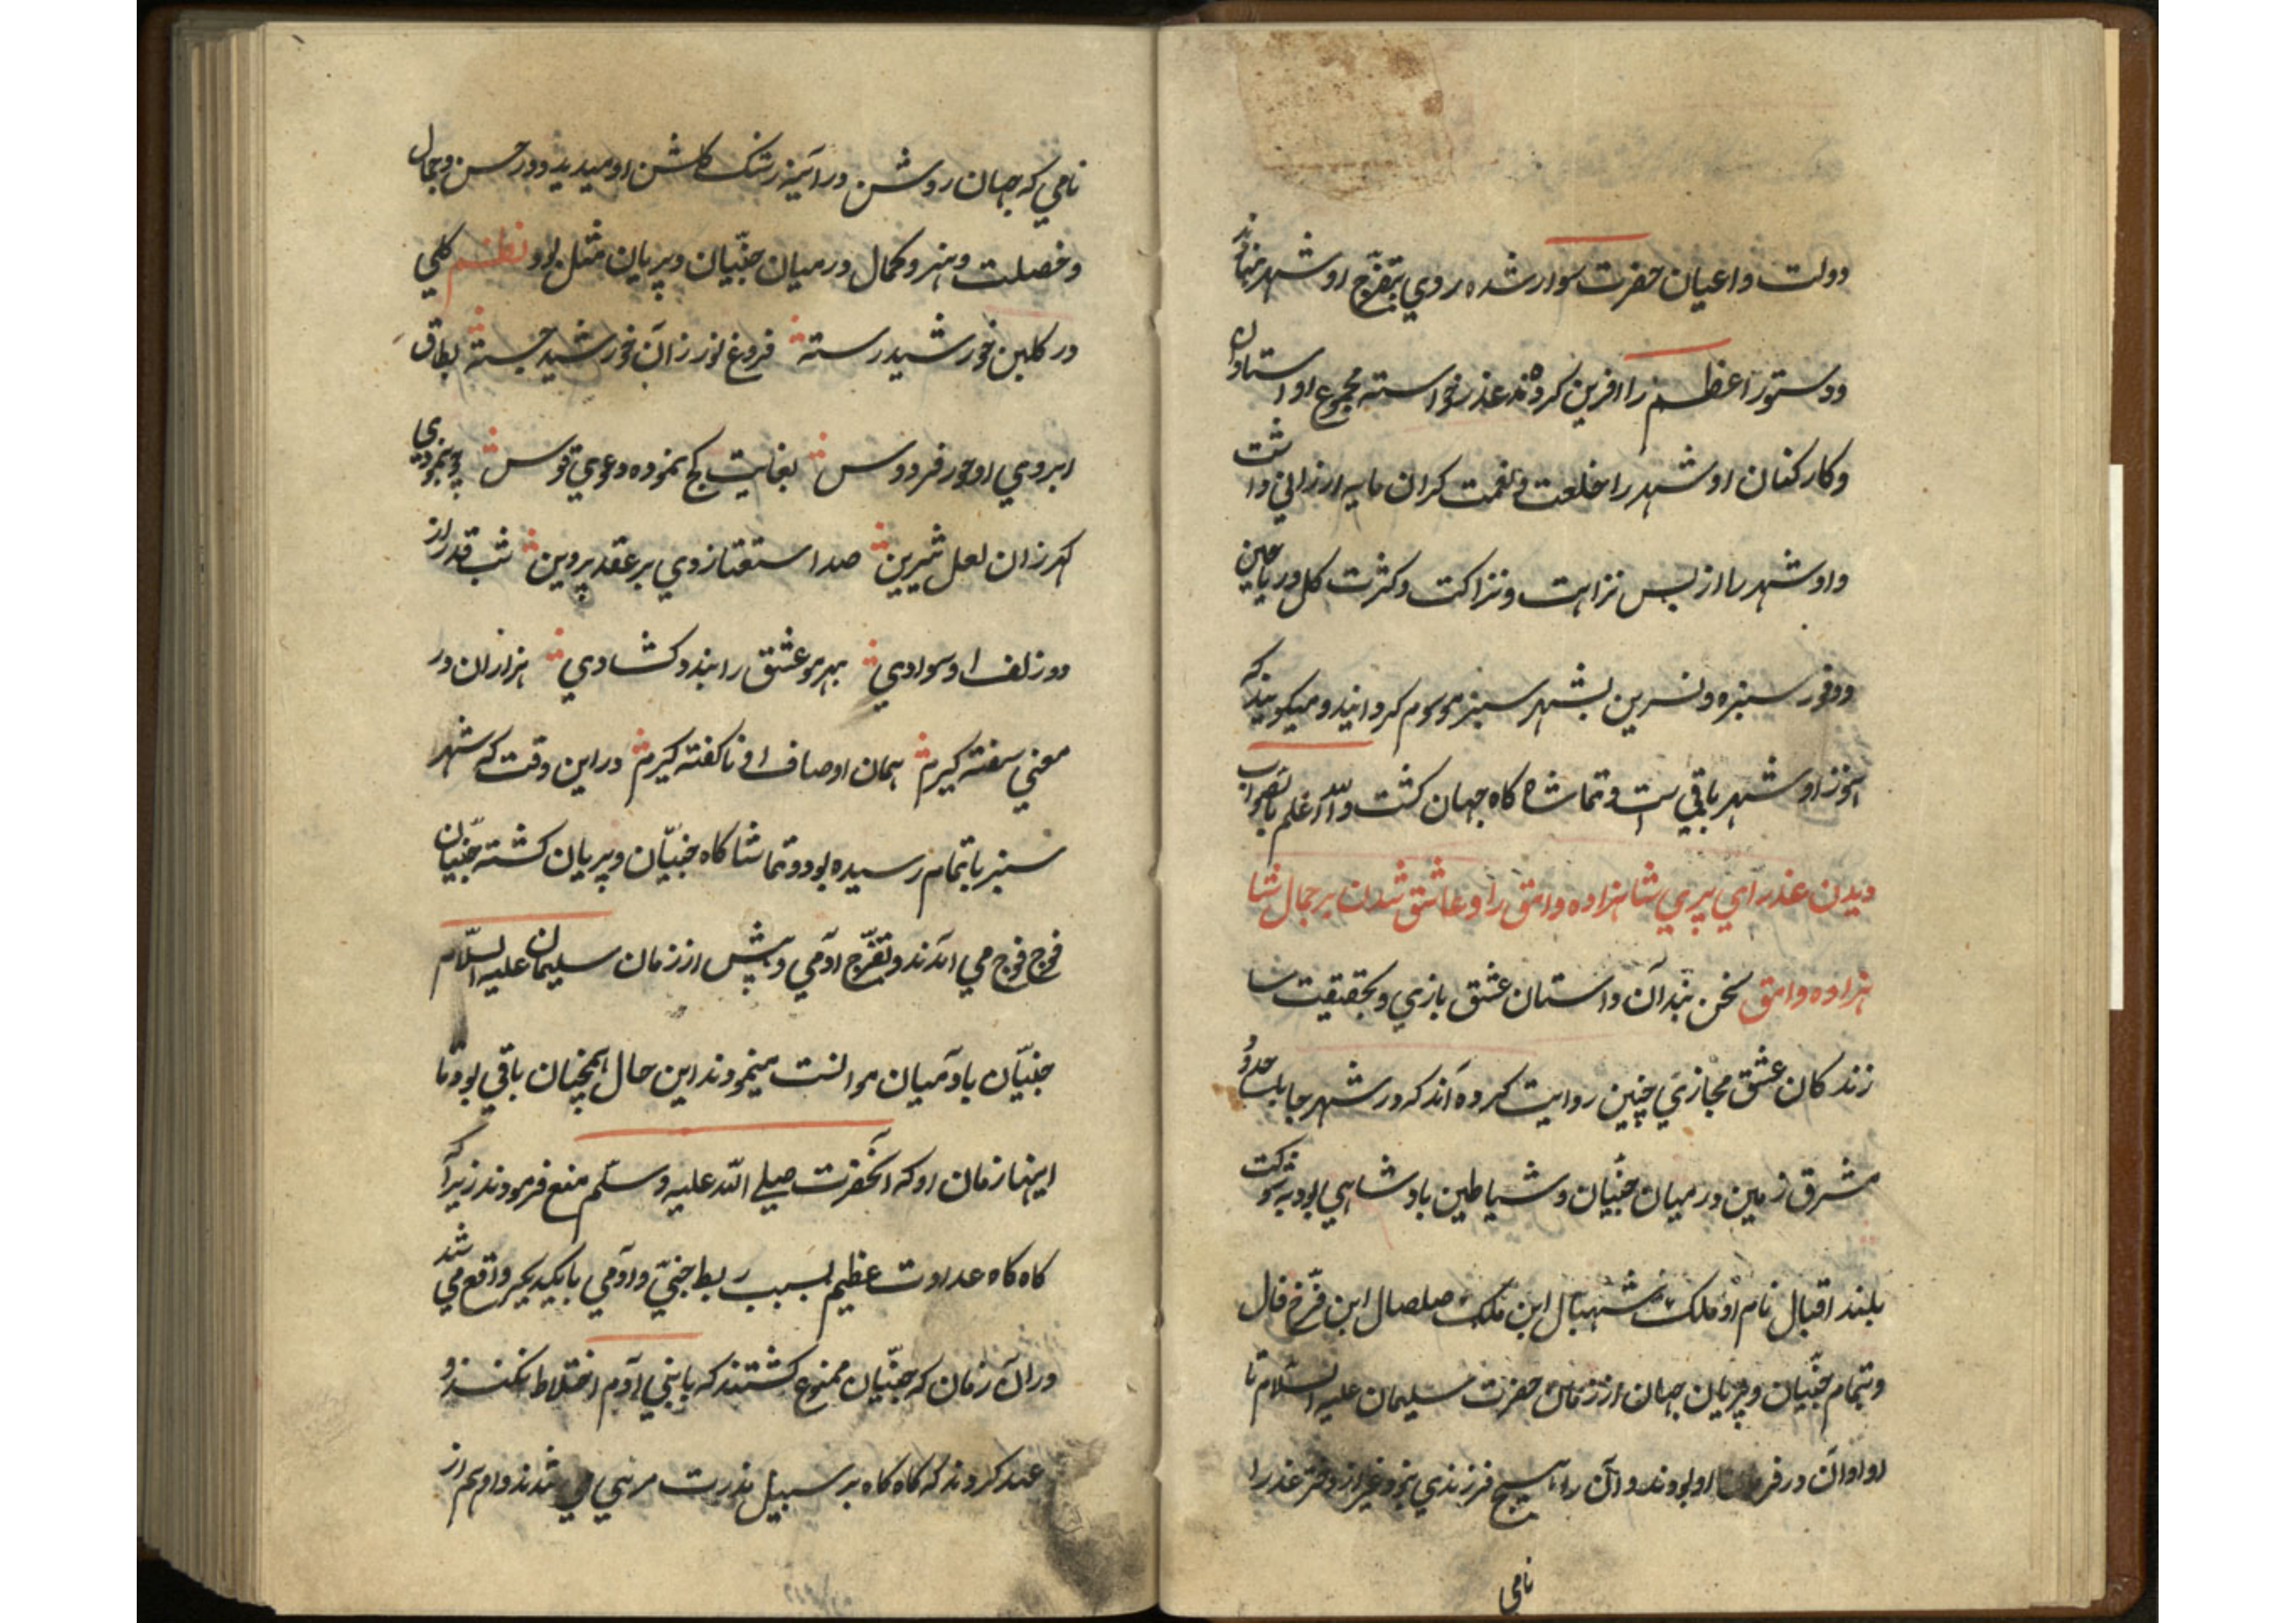 دولت و اعیان حضرت سوار شده روی بتفرّج او شهر نهادند
و دستور اعظم را آفرین کرده‌ند عذر خواسته مجموع او استادان
و کارکنان او شهر را خلعت و نعمت کران مایه ارزانی داشت
و او شهر را از بس نزاهت و نزاکت و کثرت کل و ریاحین
و وفور سبزه و نسرین بشهر سبز موسوم کردانیدند و میکویند که
هنوز او شهر باقی ست و تماشاه کاه جهان کشت والله اعلم بالصواب
دیدن عذرای پری شاهزاده وامق را و عاشق شدن بر جمال شا
هزاده وامق سخن بندان داستان عشق بازی و بحقیقت سا
زندکان عشق مجازی چنین روایت کرده‌اند که در شهر جابلسا حدود
مشرق زمین در میان جنّیان و شیاطین بادشاهی بود بشوکت
بلند اقبال نام او ملک شهبال ابن ملک صلصال ابن فرّخ فال
و تمام جنّیان و پریان جهان از زمان حضرت سلیمان علیه السلام تا
او اوان در فرمان او بودند و آن را هیچ فرزندی نبود غیر از دختر عذرا
نامی
نامی که جهان روشن در آئینه رشک کلشن او میدید و در حسن و جمال
و خصلت و هنر و کمال در میان جنّیان و پریان مثل بود نظم کلی
در کلبن خورشید رسته فروغ نور زان خورشید جسته بطاق
ابروی او حور فردوس بغایت کج نموده دعوی قوس چو نمودی
کهر زان لعل شیرین صد استغنا زدی بر عقد پروین شب قدر از
دو زلف او سوادی بهر مو عشق را بند و کشادی هزاران در
معنی سفته کیرم همان اوصاف او ناکفته کیرم در این وقت که شهر
سبز باتمام رسیده بود و تماشا کاه جنّیان و پریان کشته جنّیان
فوج فوج می آمدند و تفرّج آدمی و پیش از زمان سلیمان علیه السّلام
جنّیان با آدمیان موانست مینمودند این حال همچنان باقی بود تا
اینها زمان او که آنحضرت صلی الله علیه وسلّم منع فرمودند زیراکه
کاه کاه عداوت عظیم بسبب ربط جنّی و آدمی با یکدیکر واقع می شد
در آن زمان که جنّیان ممنوع کشتند که با بنی آدم اختلاط نکنند و
عهد کردند که کاه کاه بر سبیل ندرت مرئی می شدند و او هم از